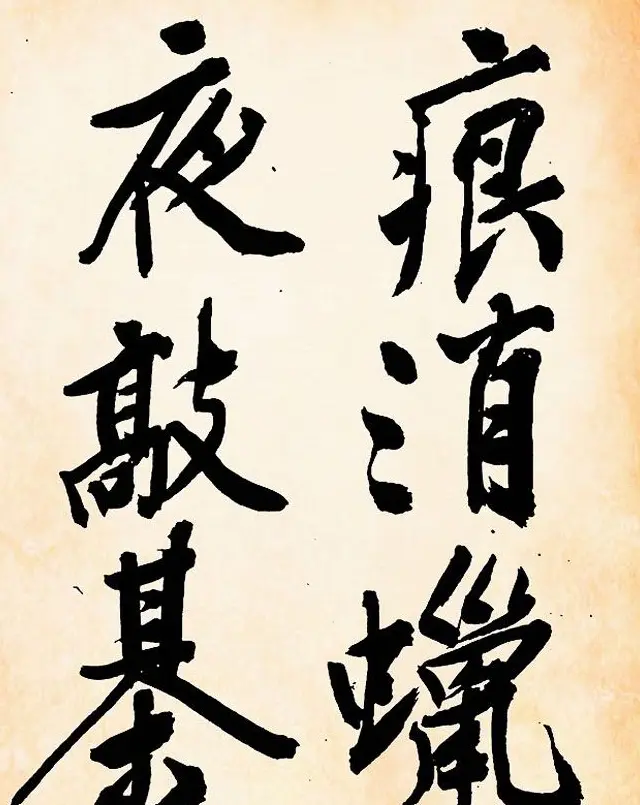 痕消蠟
夜敲